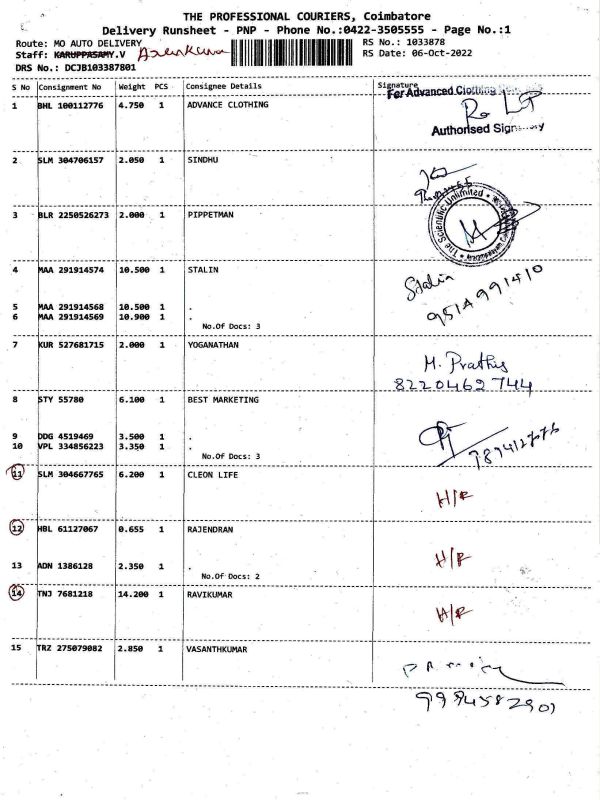 THE PROFESSIONAL COURIERS, Coimbatore
Delivery Runsheet - PNP - Phone No.:0422-3505555 - Page No.:1
Route: MO AUTO DELIVERY RS No.: 1033878
Staff: KARUPPASAMY.V RS Date: 06-Oct-2022
DRS No.: DCJB103387801
S No Consignment No Weight PCS Consignee Details Signature
For Advanced Clothing
1 BHL 100112776 4.750 1 ADVANCE CLOTHING
Authorised Signatory
2 SLM 304706157 2.050 1 SINDHU
The Scientific Unlimited
3 BLR 2250526273 2.000 1 PIPPETMAN
4 MAA 291914574 10.500 1 STALIN Stalin
9514991410
5 MAA 291914568 10.500 1 .
6 MAA 291914569 10.900 1 .
No.Of Docs: 3
7 KUR 527681715 2.000 1 YOGANATHAN
M. Prathis
8220462744
8 STY 55780 6.100 1 BEST MARKETING
9 DDG 4519469 3.500 1 .
10 VPL 334856223 3.350 1 .
No.Of Docs: 3
11 SLM 304667765 6.200 1 CLEON LIFE
H/R
12 HBL 61127067 0.655 1 RAJENDRAN
H/R
13 ADN 1386128 2.350 1 .
No.Of Docs: 2
14 TNJ 7681218 14.200 1 RAVIKUMAR
H/R
15 TRZ 275079082 2.850 1 VASANTHKUMAR
9994582901